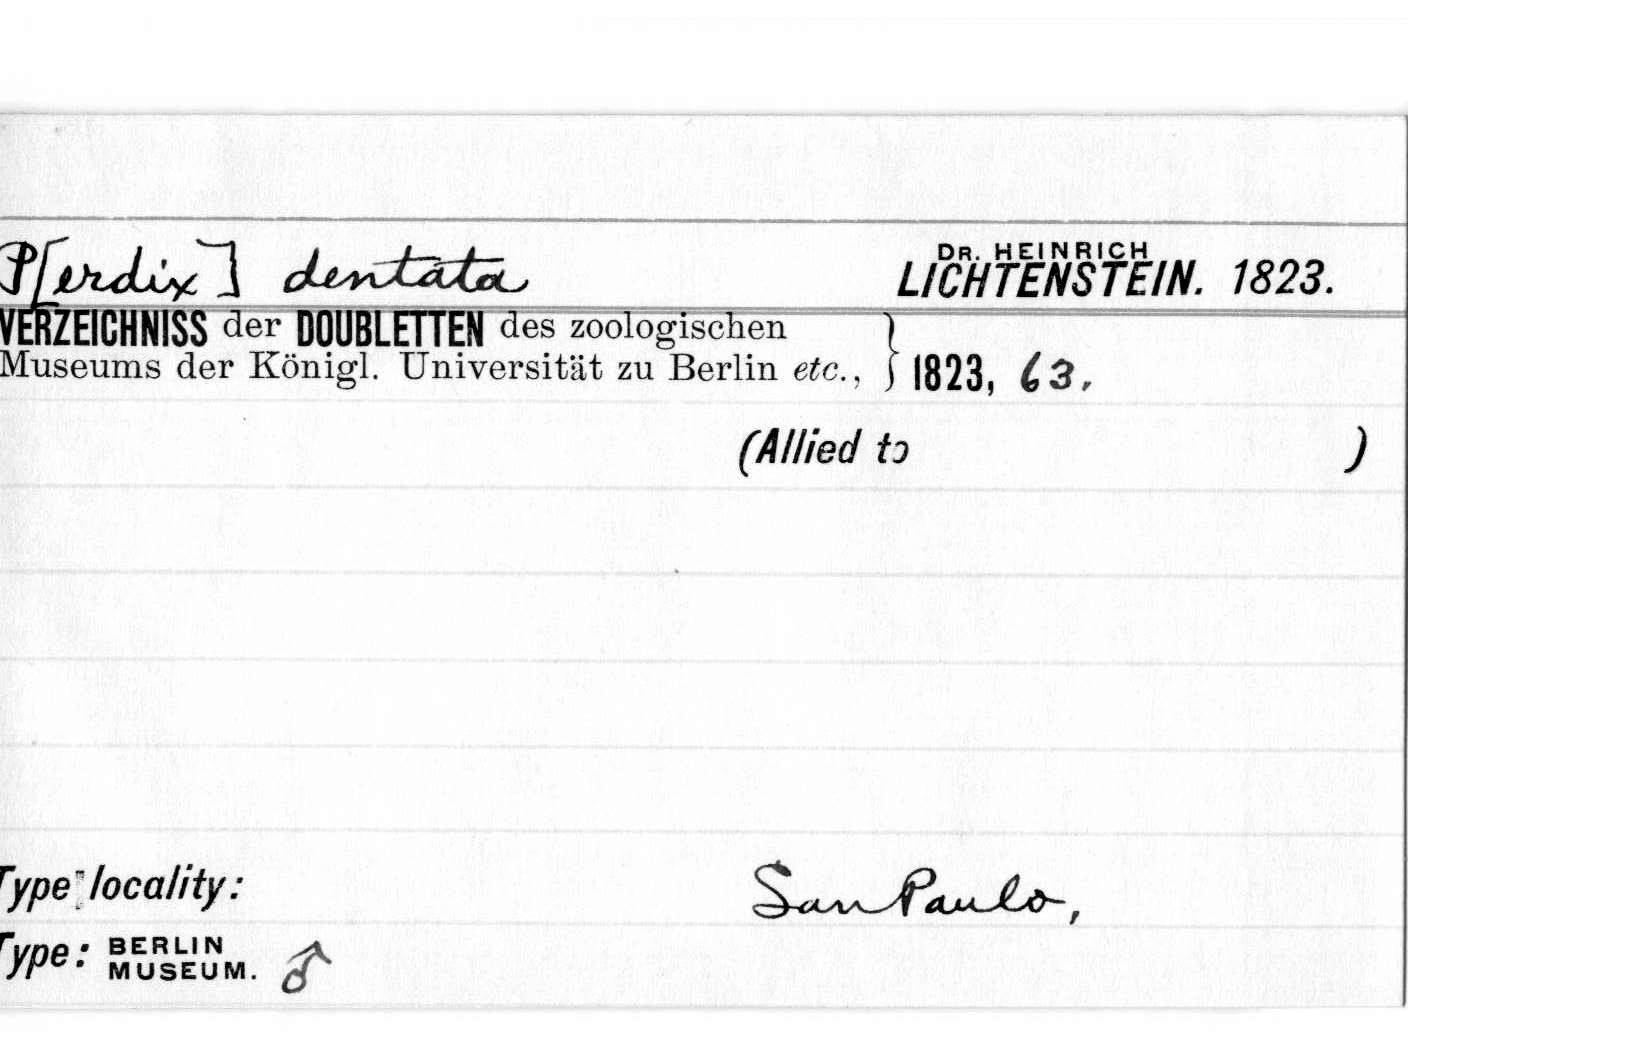 P[erdix] dentata DR. HEINRICH LICHTENSTEIN. 1823.
VERZEICHNISS der DOUBLETTEN des zoologischen
Museums der Königl. Universität zu Berlin etc., } 1823, 63.
(Allied to )
Type locality: San Paulo,
Type: BERLIN MUSEUM. ♂